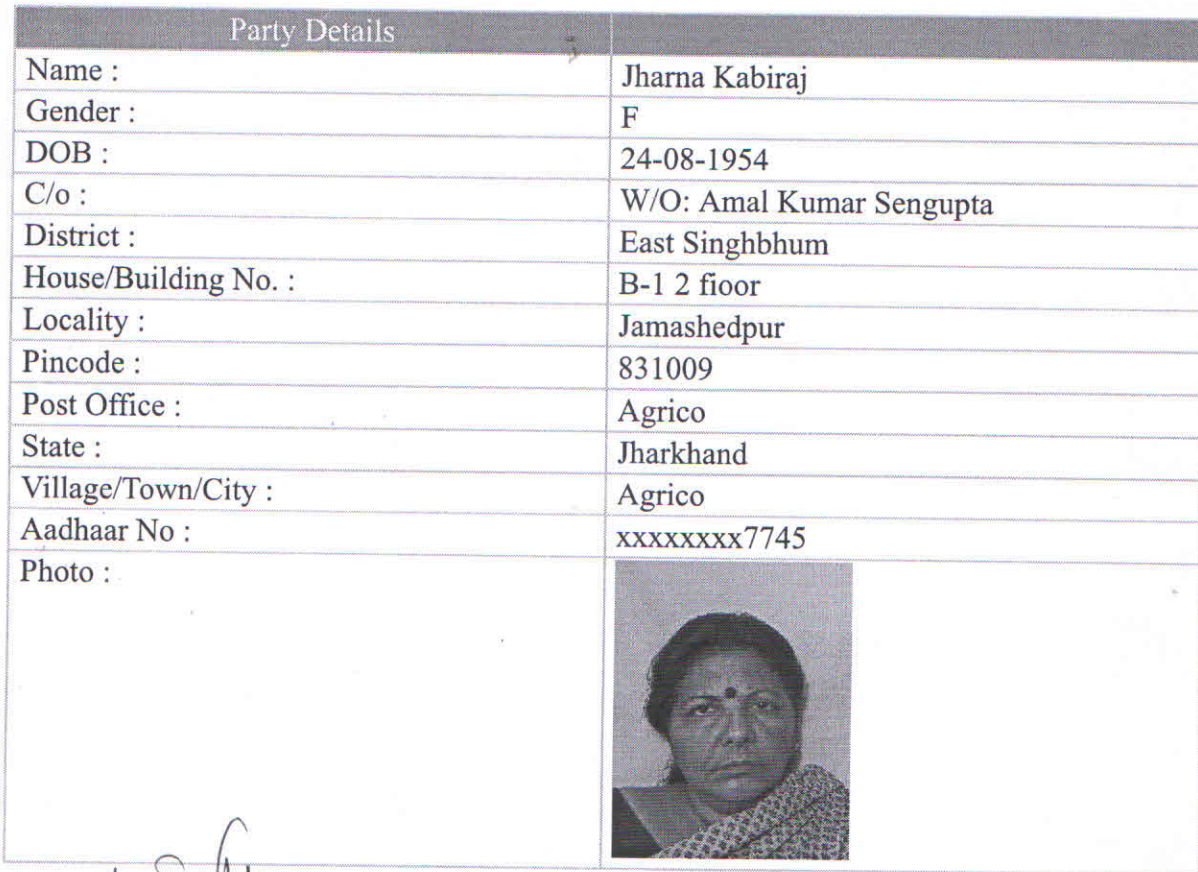 Party Details
Name : Jharna Kabiraj
Gender : F
DOB : 24-08-1954
C/o : W/O: Amal Kumar Sengupta
District : East Singhbhum
House/Building No. : B-1 2 fioor
Locality : Jamashedpur
Pincode : 831009
Post Office : Agrico
State : Jharkhand
Village/Town/City : Agrico
Aadhaar No : xxxxxxxx7745
Photo :